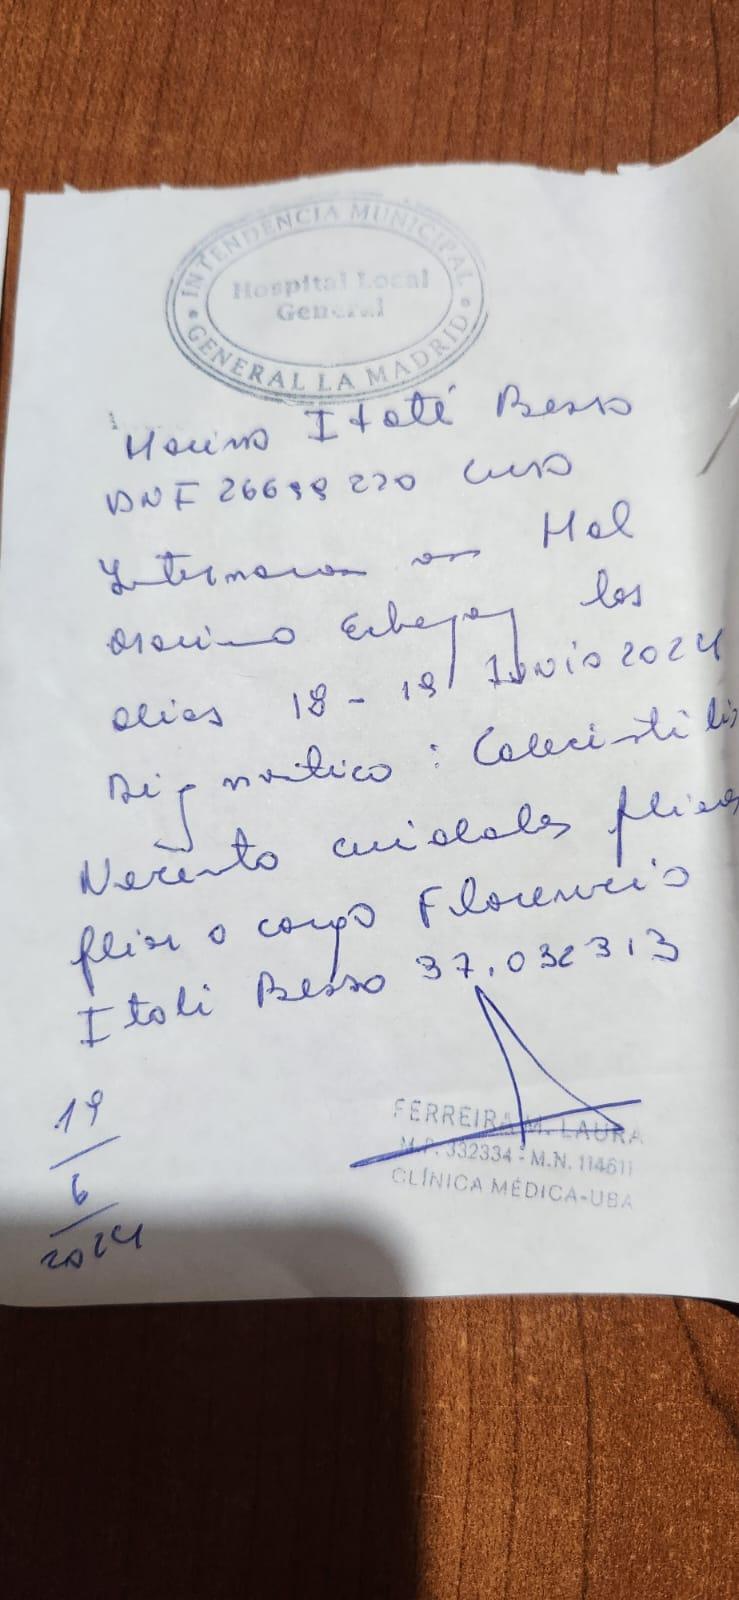 INTENDENCIA MUNICIPAL
Hospital Local
General
GENERAL LA MADRID
Itatí Besso
DNI 26699270 curso
Internacion en Hal
los
dias 18 - 19 Junio 2024
Diagnostico : Colecistitis
Necesito cuidados
a cargo Florencia
Itati Besso 37.032313
19
6
2024
FERREIRA M. LAURA
M.P. 332334 - M.N. 114611
CLÍNICA MÉDICA-UBA